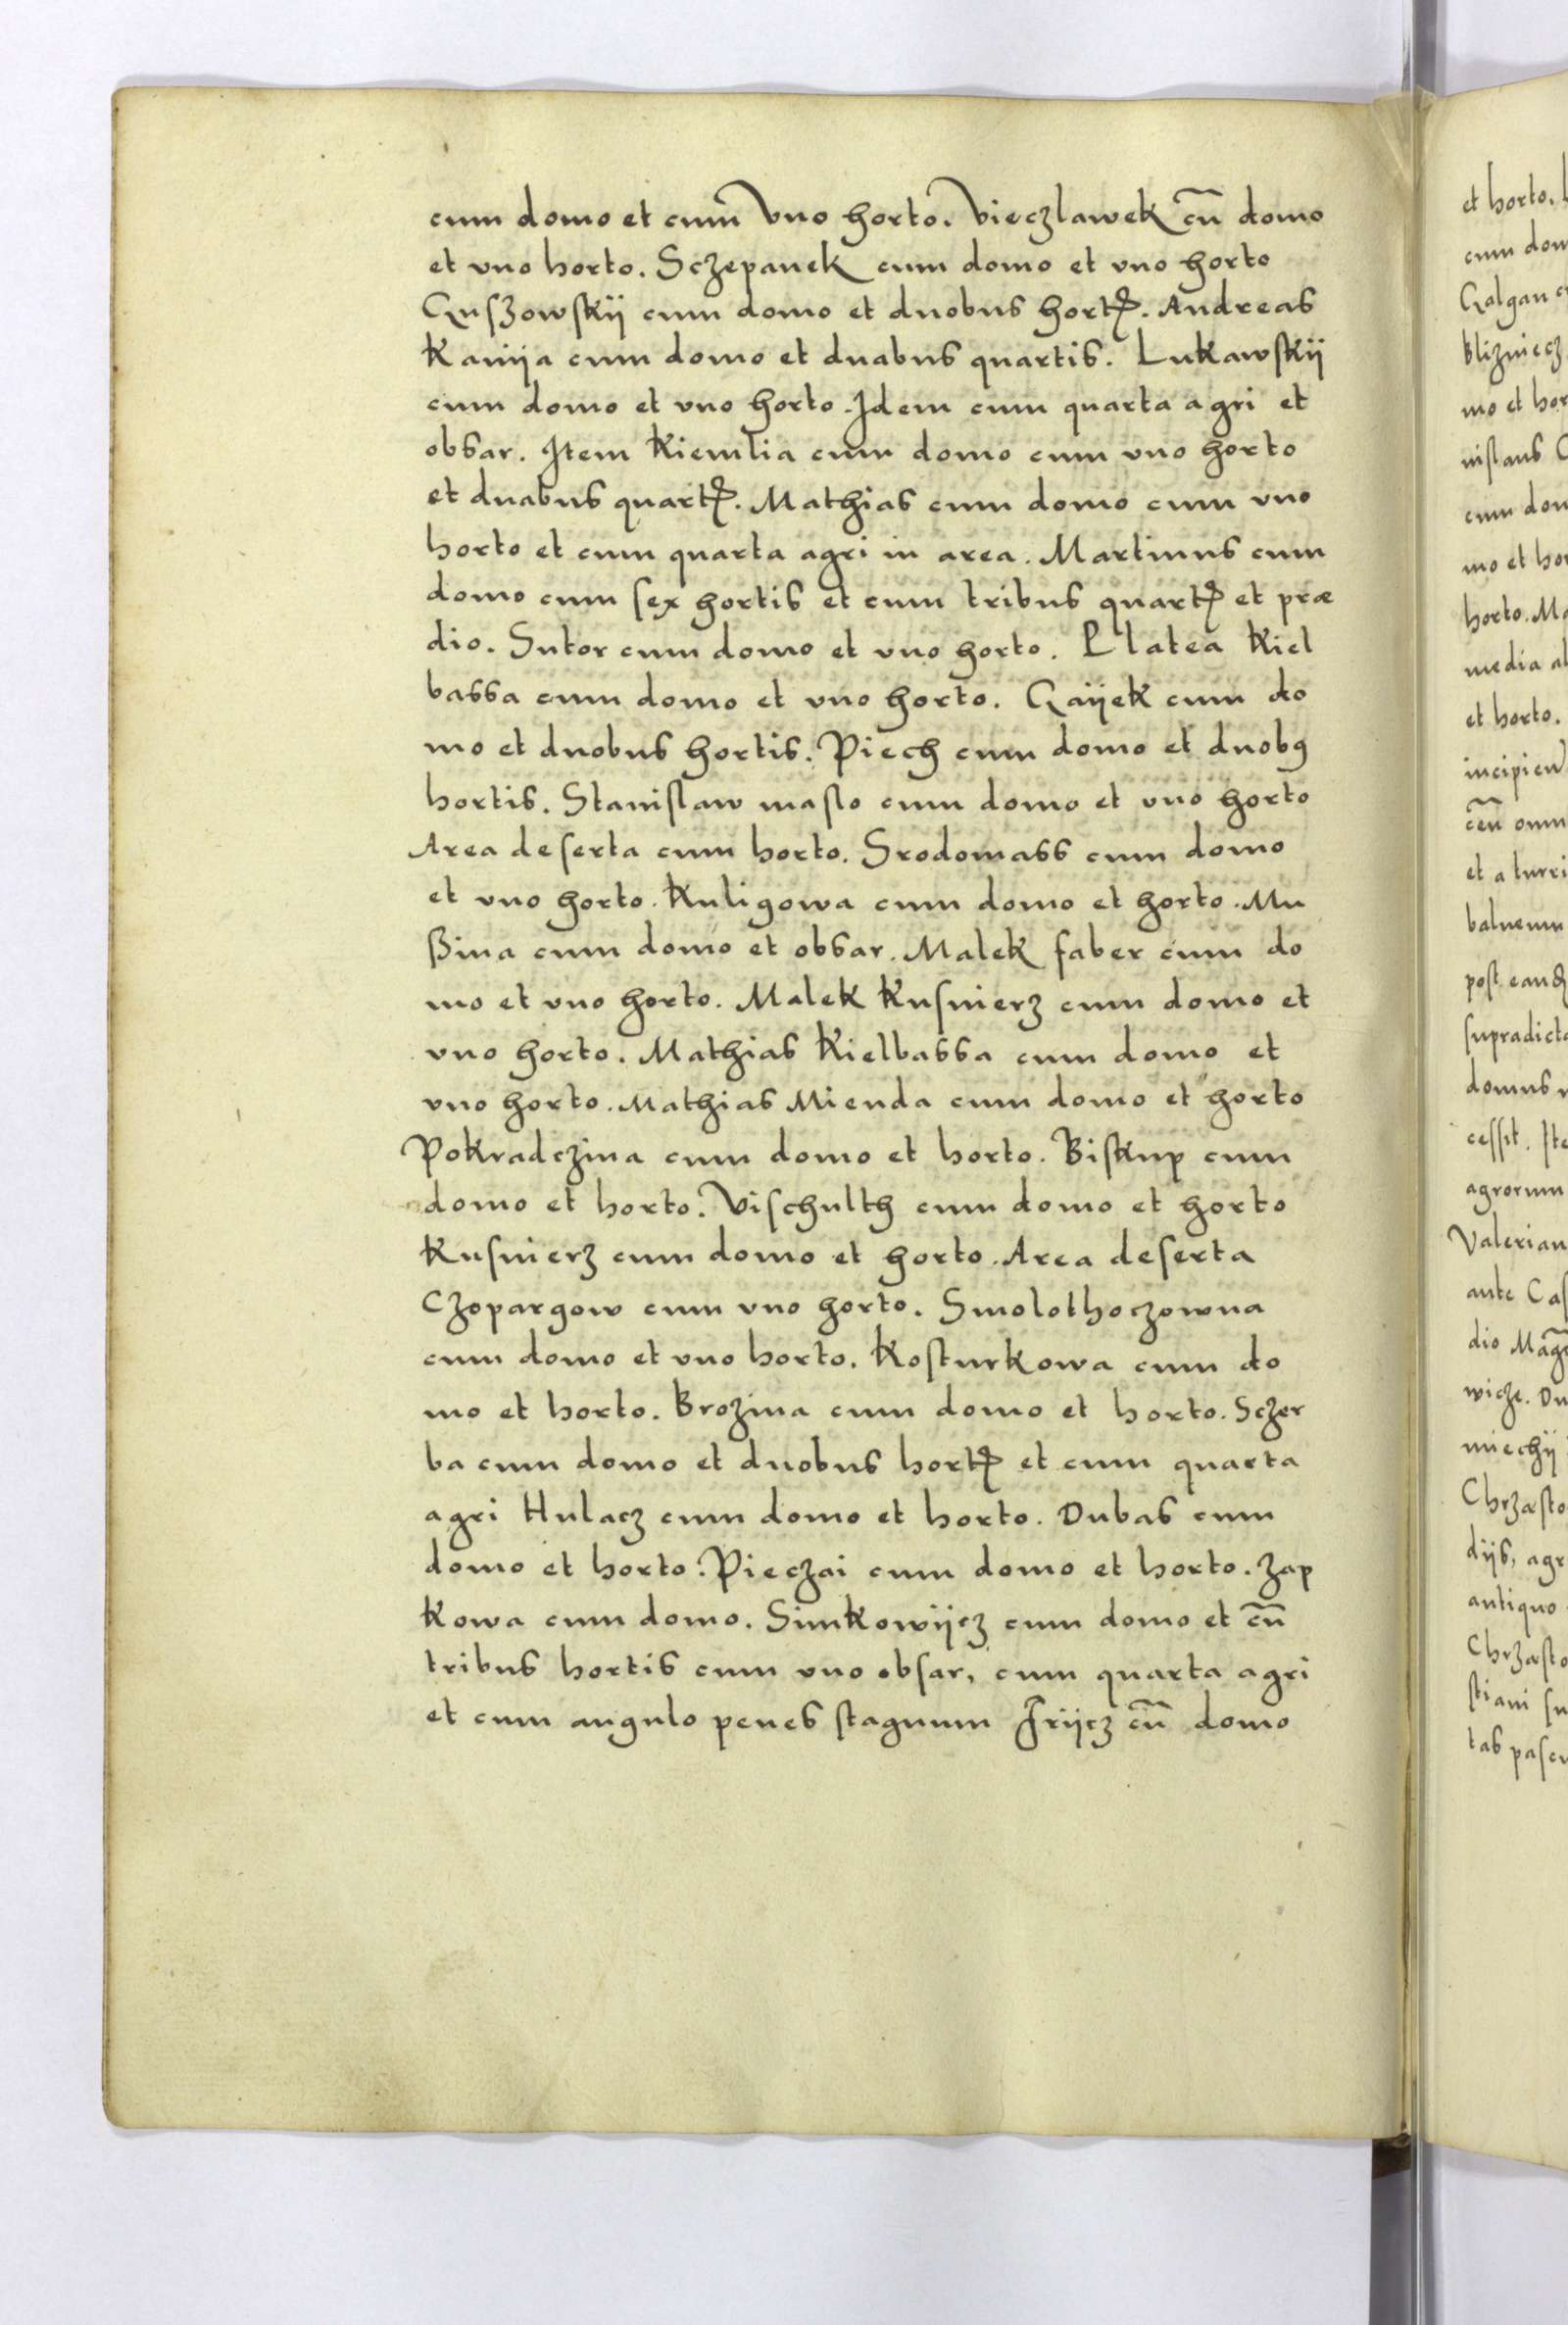 cum domo et cum Vno horto. Vieczlawek cũ domo
et vno horto. Sczepanek cum domo et vno horto
Guszowskÿ cum domo et duobus hortꝭ. Andreas
Kanÿa cum domo et duabus quartis. Lukawskÿ
cum domo et vno horto. Idem cum quarta agri et
obsar. Item Kiemlia cum domo cum vno horto
et duabus quartꝭ. Mathias cum domo cum vno
horto et cum quarta agri in area. Martinus cum
domo cum sex hortis et cum tribus quartꝭ et præ
dio. Sutor cum domo et vno horto. Platea Kiel
bassa cum domo et vno horto. Gaÿek cum do
mo et duobus hortis. Piech cum domo et duobꝰ
hortis. Stanislaw maslo cum domo et vno horto
Area deserta cum horto. Srodomass cum domo
et vno horto. Kuligowa cum domo et horto. Mu
ßina cum domo et obsar. Malek faber cum do
mo et vno horto. Malek Kusnierz cum domo et
vno horto. Mathias Kielbassa cum domo et
vno horto. Mathias Mienda cum domo et horto
Pokradczina cum domo et horto. Biskup cum
domo et horto. Vischulth cum domo et horto
Kusnierz cum domo et horto. Area deserta
Czopargow cum vno horto. Smolothoczowna
cum domo et vno horto. Kosturkowa cum do
mo et horto. Brozina cum domo et horto. Sczer
ba cum domo et duobus hortꝭ et cum quarta
agri Hulacz cum domo et horto. Dubas cum
domo et horto. Pieczai cum domo et horto. Zap
kowa cum domo. Simkowÿcz cum domo et cũ
tribus hortis cum vno obsar, cum quarta agri
et cum angulo penes stagnum Frÿcz cũ domo
et horto.
cum dom
Galgan
Blizniecz
mo et hor
nislaus
cum dom
mo et hor
horto. Ma
media al
et horto.
incipien
cẽn omn
et a turri
balneum
post eand
supradicta
domus
cessit. Ite
agrorum
Valerian
ante Cas
dio Mag̃
wicze. Du
miechÿ
Chrzasto
dijs, agr
antiquo
Chrzasto
stiani su
tas pascu